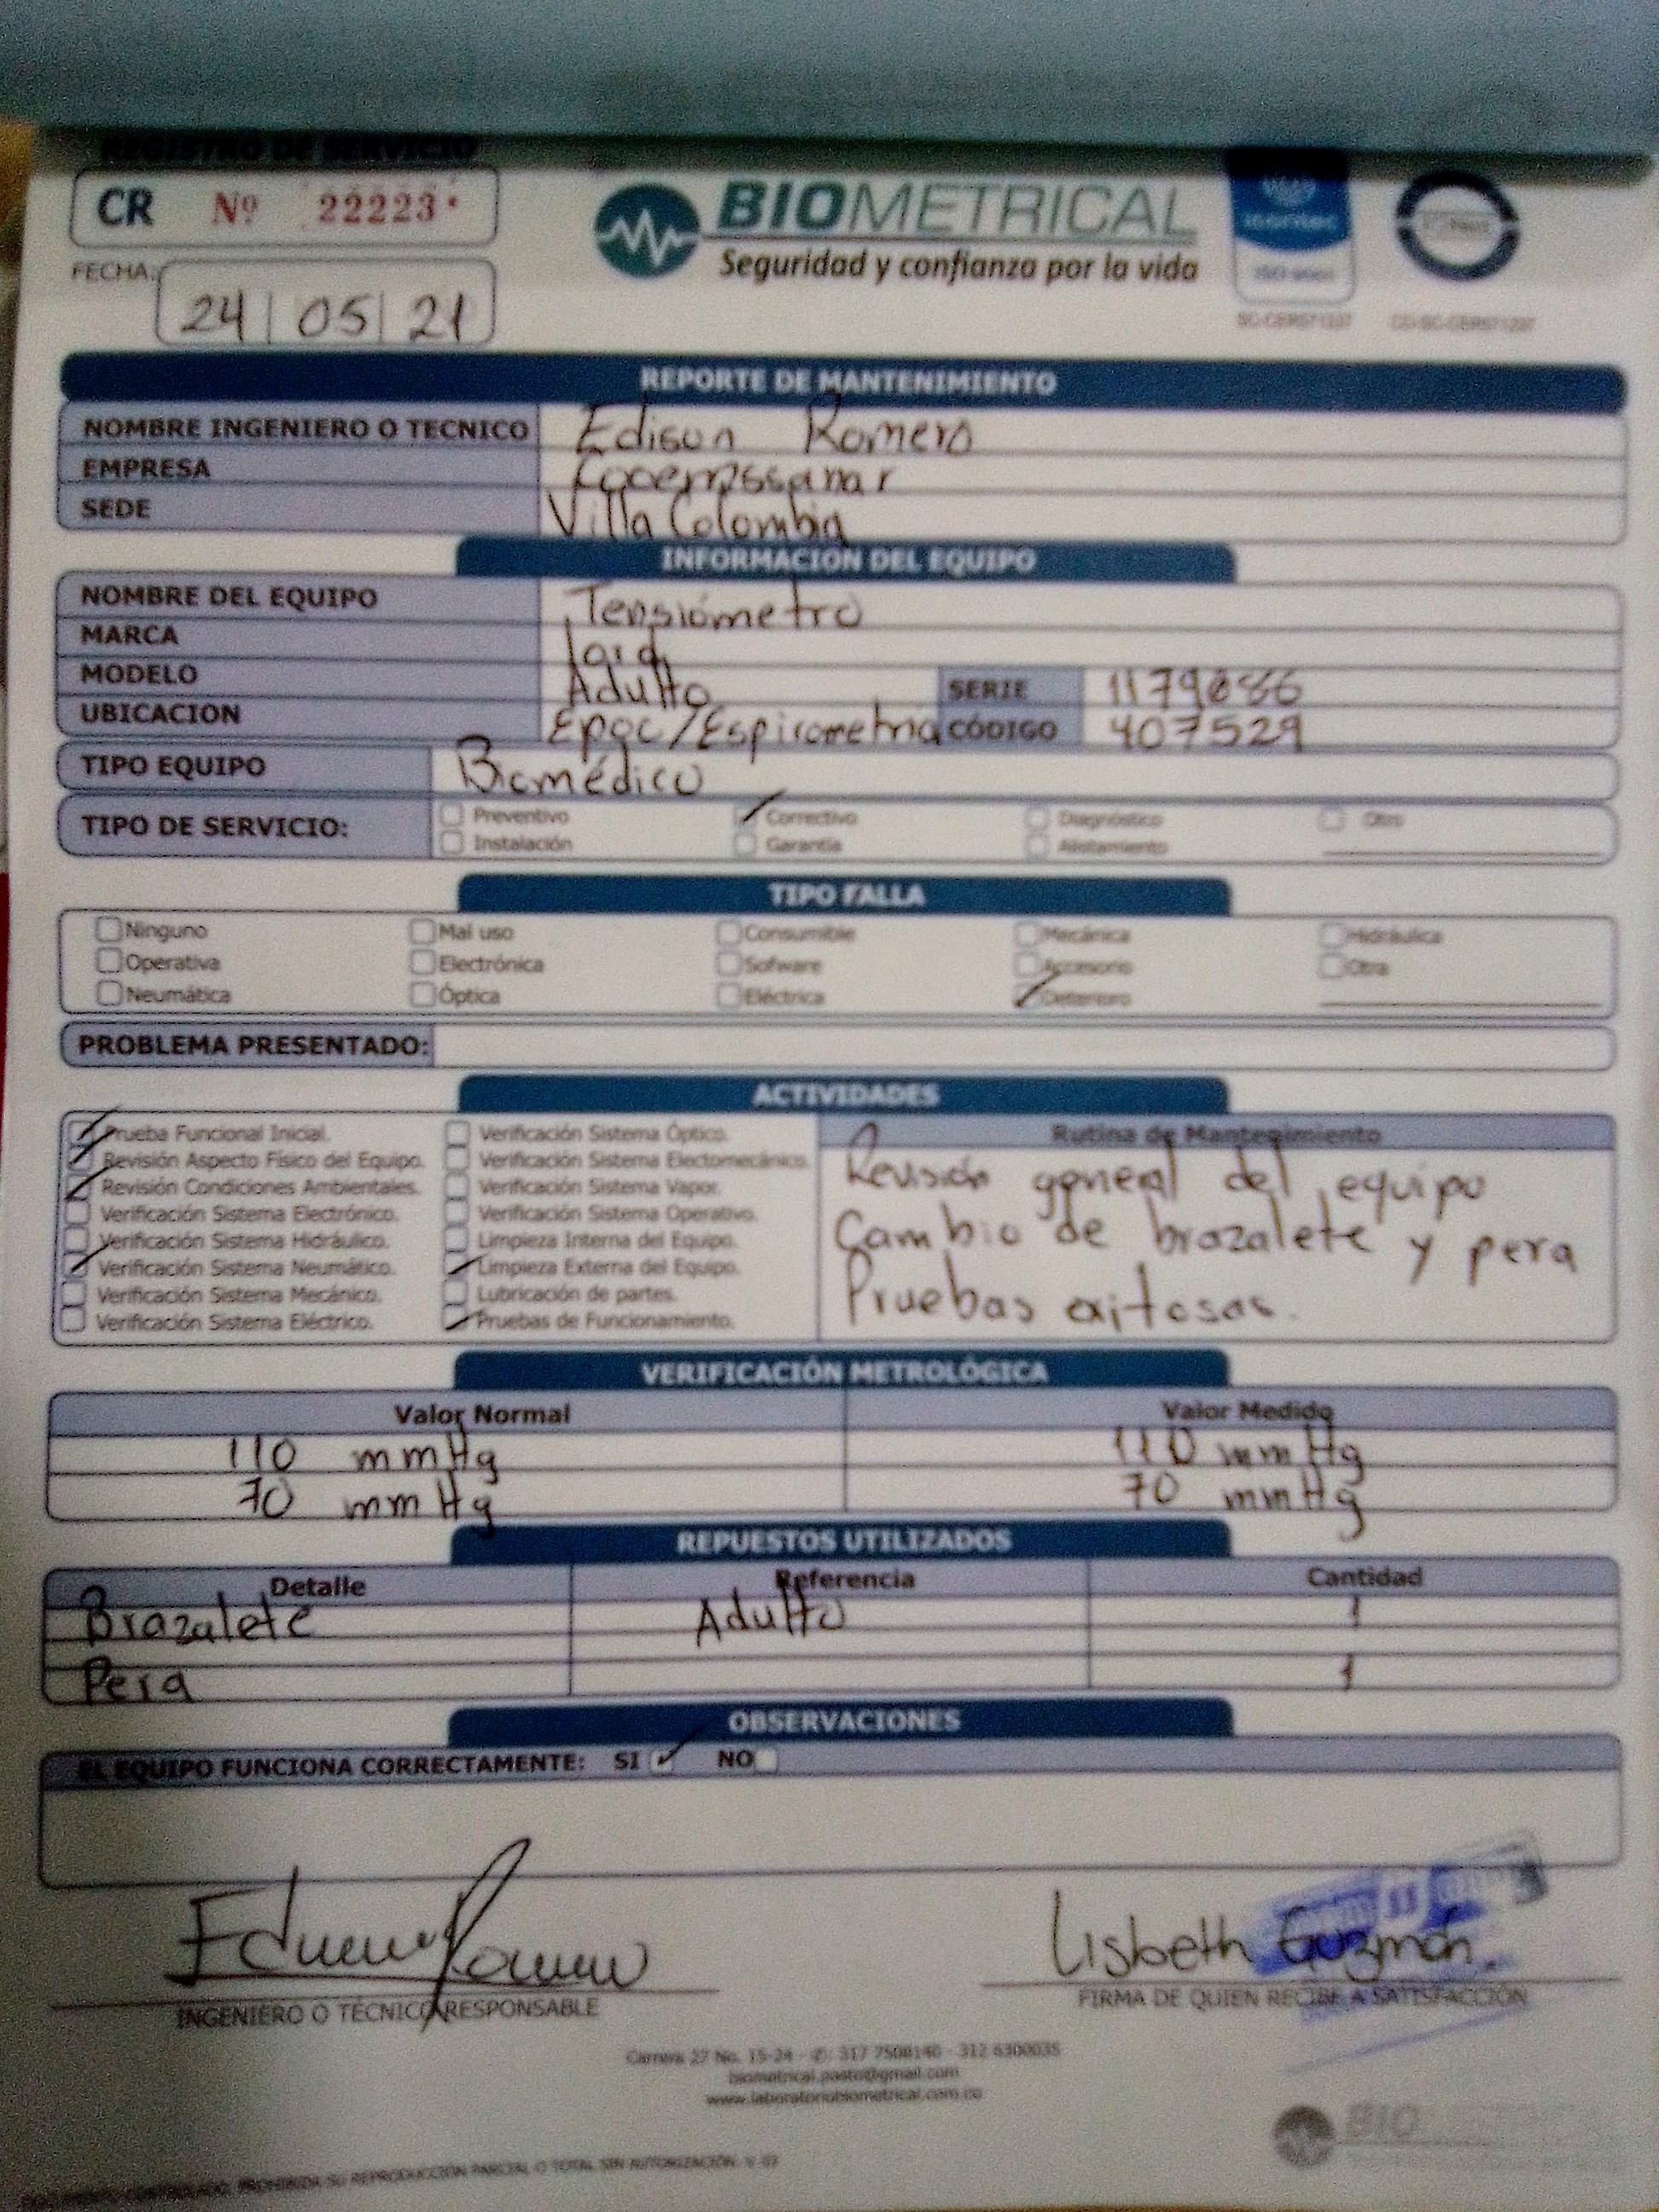 REGISTRO DE SERVICIO
CR Nº 22223
FECHA:
24 | 05 | 21
BIOMETRICAL
Seguridad y confianza por la vida
icontec
ISO 9001
SC-CER571237
CO-SC-CER571237
REPORTE DE MANTENIMIENTO
NOMBRE INGENIERO O TECNICO Edison Romero
EMPRESA
SEDE Villa Colombia
INFORMACION DEL EQUIPO
NOMBRE DEL EQUIPO Tensiómetro
MARCA
MODELO Adulto SERIE
UBICACION Epoc/Espirometria CÓDIGO 407529
TIPO EQUIPO Biomédico
TIPO DE SERVICIO: Preventivo Correctivo Diagnóstico Otro
Instalación Garantía Alistamiento
TIPO FALLA
Ninguno Mal uso Consumible Mecánica Hidráulica
Operativa Electrónica Sofware Accesorio Otra
Neumática Óptica Eléctrica Deterioro
PROBLEMA PRESENTADO:
ACTIVIDADES
Prueba Funcional Inicial.
Revisión Aspecto Físico del Equipo.
Revisión Condiciones Ambientales.
Verificación Sistema Electrónico.
Verificación Sistema Hidráulico.
Verificación Sistema Neumático.
Verificación Sistema Mecánico.
Verificación Sistema Eléctrico.
Verificación Sistema Óptico.
Verificación Sistema Electomecánico.
Verificación Sistema Vapor.
Verificación Sistema Operativo.
Limpieza Interna del Equipo.
Limpieza Externa del Equipo.
Lubricación de partes.
Pruebas de Funcionamiento.
Rutina de Mantenimiento
Revisión general del equipo
Cambio de brazalete y pera
Pruebas exitosas.
VERIFICACIÓN METROLÓGICA
Valor Normal Valor Medido
110 mmHg 110 mmHg
70 mmHg 70 mmHg
REPUESTOS UTILIZADOS
Detalle Referencia Cantidad
Brazalete Adulto 1
Pera 1
OBSERVACIONES
EL EQUIPO FUNCIONA CORRECTAMENTE: SI NO
Lisbeth Guzmán.
INGENIERO O TÉCNICO RESPONSABLE
FIRMA DE QUIEN RECIBE A SATISFACCIÓN
Carrera 27 No. 15-24 - 317 7508140 - 312 6300035
biometrical.pasto@gmail.com
www.laboratoriobiometrical.com.co
BIO
DOCUMENTO CONTROLADO, PROHIBIDA SU REPRODUCCIÓN PARCIAL O TOTAL SIN AUTORIZACIÓN. V. 03